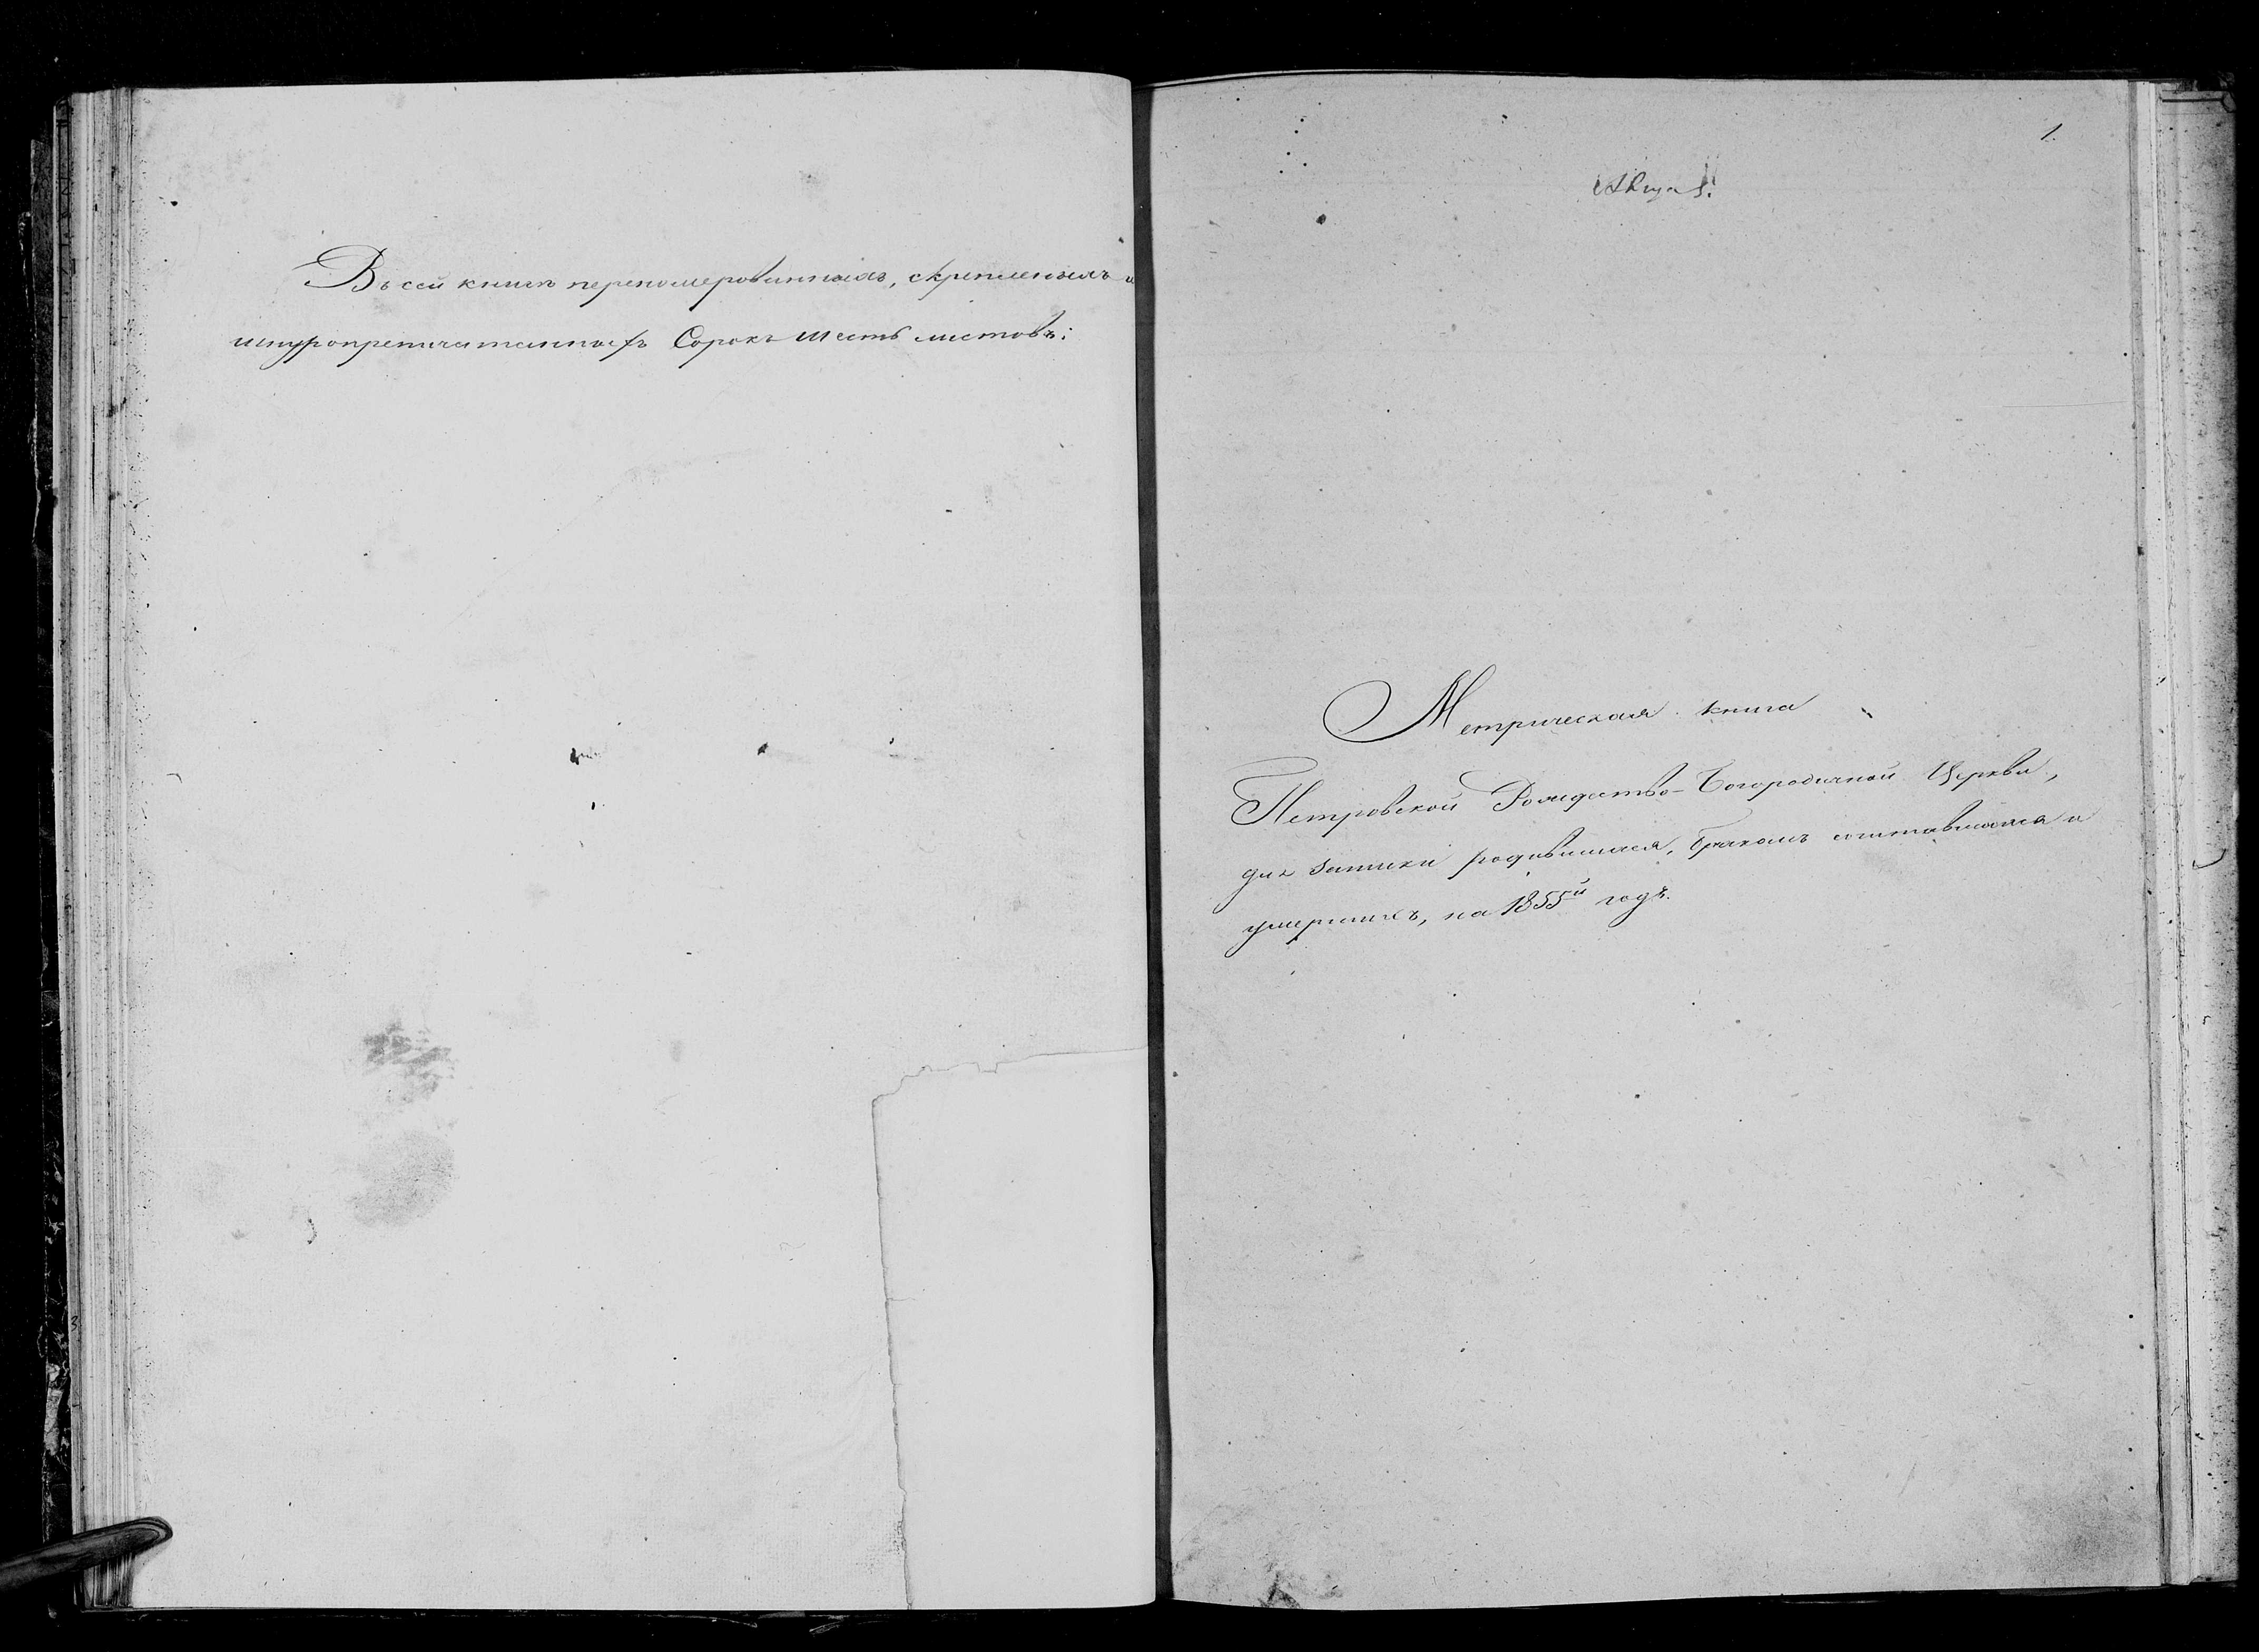 Въ сей книгѣ перенумерованныхъ, скрепленыхъ и
шнуропрепечатанныхъ Сорокъ шесть листовъ:
1.
Метрическая книга
Петровской Рождество-Богородичной Церкви,
для записки родившихся, бракомъ сочтавшихся и
умершихъ, на 1855й годъ.